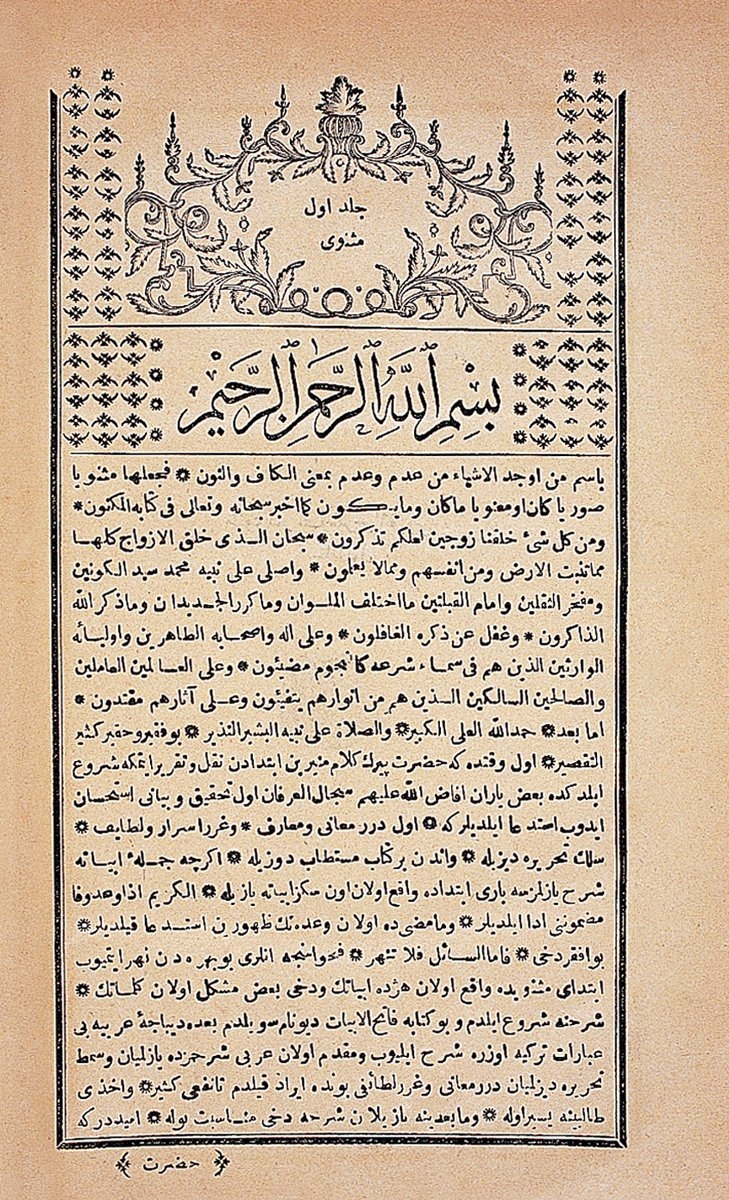 جلد اول
مثنوى
بسم الله الرحمن الرحيم
ياسم من اوجد الاشياء من عدم وعدم بمعنى الكاف والنون * فجعلها مثنويا
صوريا كان اومعنويا ماكان ومايكون كما اخبر سبحانه وتعالى فى كتابه المكنون *
ومن كل شئ خلقنا زوجين لعلكم تذكرون * سبحان الذى خلق الازواج كلها
مماتنبت الارض ومن انفسهم وممالا يعلون * واصلى على نبيه محمد سيد الكونين
ومفخر الثقلين وامام القبلتين مااختلف الملوان وماكرر الجديدان وماذكر الله
الذاكرون * وغفل عن ذكره الغافلون * وعلى اله واصحابه الطاهرين واوليائه
الوارثين الذين هم فى سماء شرعه كانجوم مضيئون * وعلى العالمين العاملين
والصالحين السالكين الذين هم من انوارهم يتفيئون وعلى آثارهم مقتدون *
اما بعد * حمدالله العلى الكبير * والصلاة على نبيه البشير النذير * بوفقير وحقير كثير
التقصير * اول وقتده كه حضرت پيرك كلام منيرين ابتدادن نقل وتقرير ايتمكه شروع
ايلدكده بعض ياران افاض الله عليهم سجال العرفان اول تحقيق وبيانى استحسان
ايدوب استدعا ايلديلركه * اول درر معانى ومعارف * وغرر اسرار ولطايف *
سلك تحريره ديزيله * واندن بر كتاب مستطاب دوزيله * اكرچه جملهٔ ابياته
شرح يازلمزسه بارى ابتداده واقع اولان اون سكز ابياته يازيله * الكريم اذا وعدوفا
مضموننى ادا ايلديلر * ومامضىده اولان وعدهنك ظهورين استدعا قيلديلر *
بوافقردخى * فاما السائل فلا تنهر * فحواسنجه انلرى بو بهرهدن نهر ايتميوب
ابتداى مثنويده واقع اولان هژده ابياتك ودخى بعض مشكل اولان كلماتك *
شرحنه شروع ايلدم وبوكتابه فاتح الابيات ديونام سويلدم بعده ديباجهٔ عربيهيى
عبارات تركيه اوزره شرح ايليوب ومقدم اولان عربى شرحمزده يازلميان وسمط
تحريره ديزلميان دررمعانى وغررلطائفى بونده ايراد قيلدم تانفعى كثير * واخذى
طالبينه يسير اوله * ومابعدينه يازيلان شرحه دخى مناسبت بوله * اميددركه
حضرت